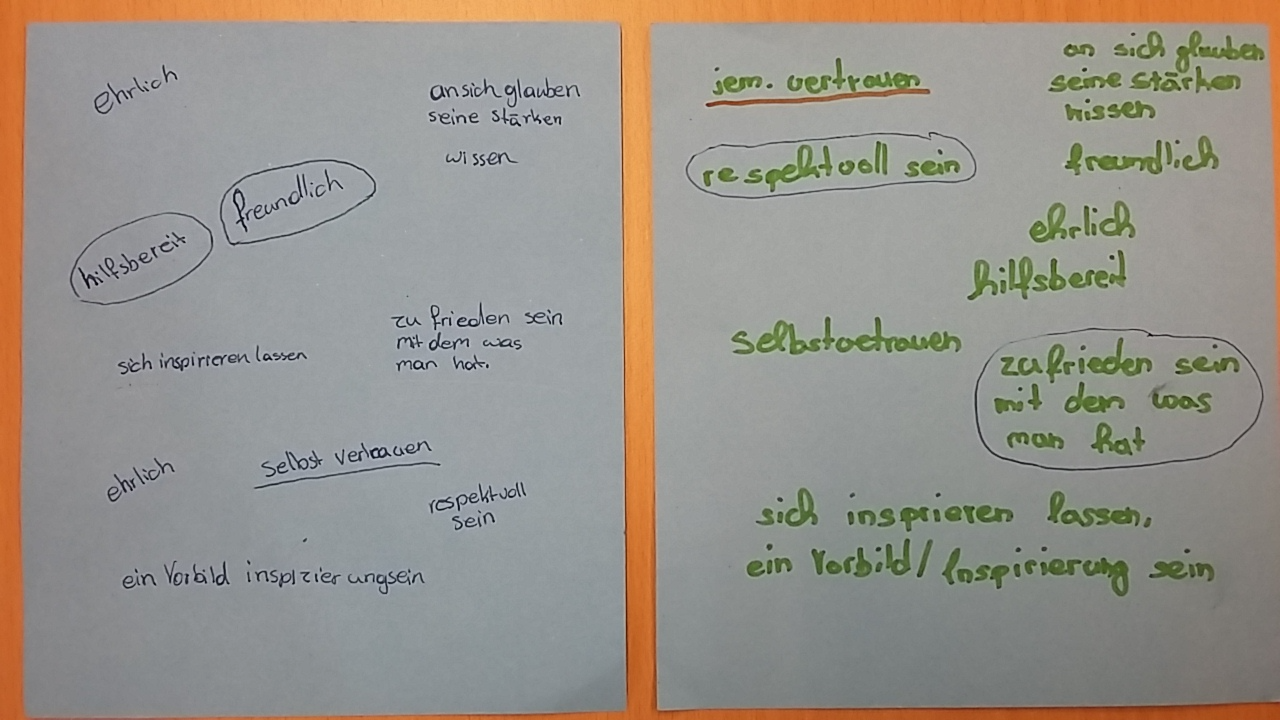 ehrlich
an sich glauben
seine stärken
wissen
freundlich
hilfsbereit
zufrieden sein
mit dem was
man hat.
sich inspirieren lassen
ehrlich
selbst vertrauen
respektvoll
sein
ein Vorbild inspizierungsein
jem. vertrauen
an sich glauben
seine stärken
wissen
respektvoll sein
freundlich
ehrlich
hilfsbereit
selbstvetrauen
zufrieden sein
mit dem was
man hat
sich insprieren lassen,
ein Vorbild/Inspirierung sein